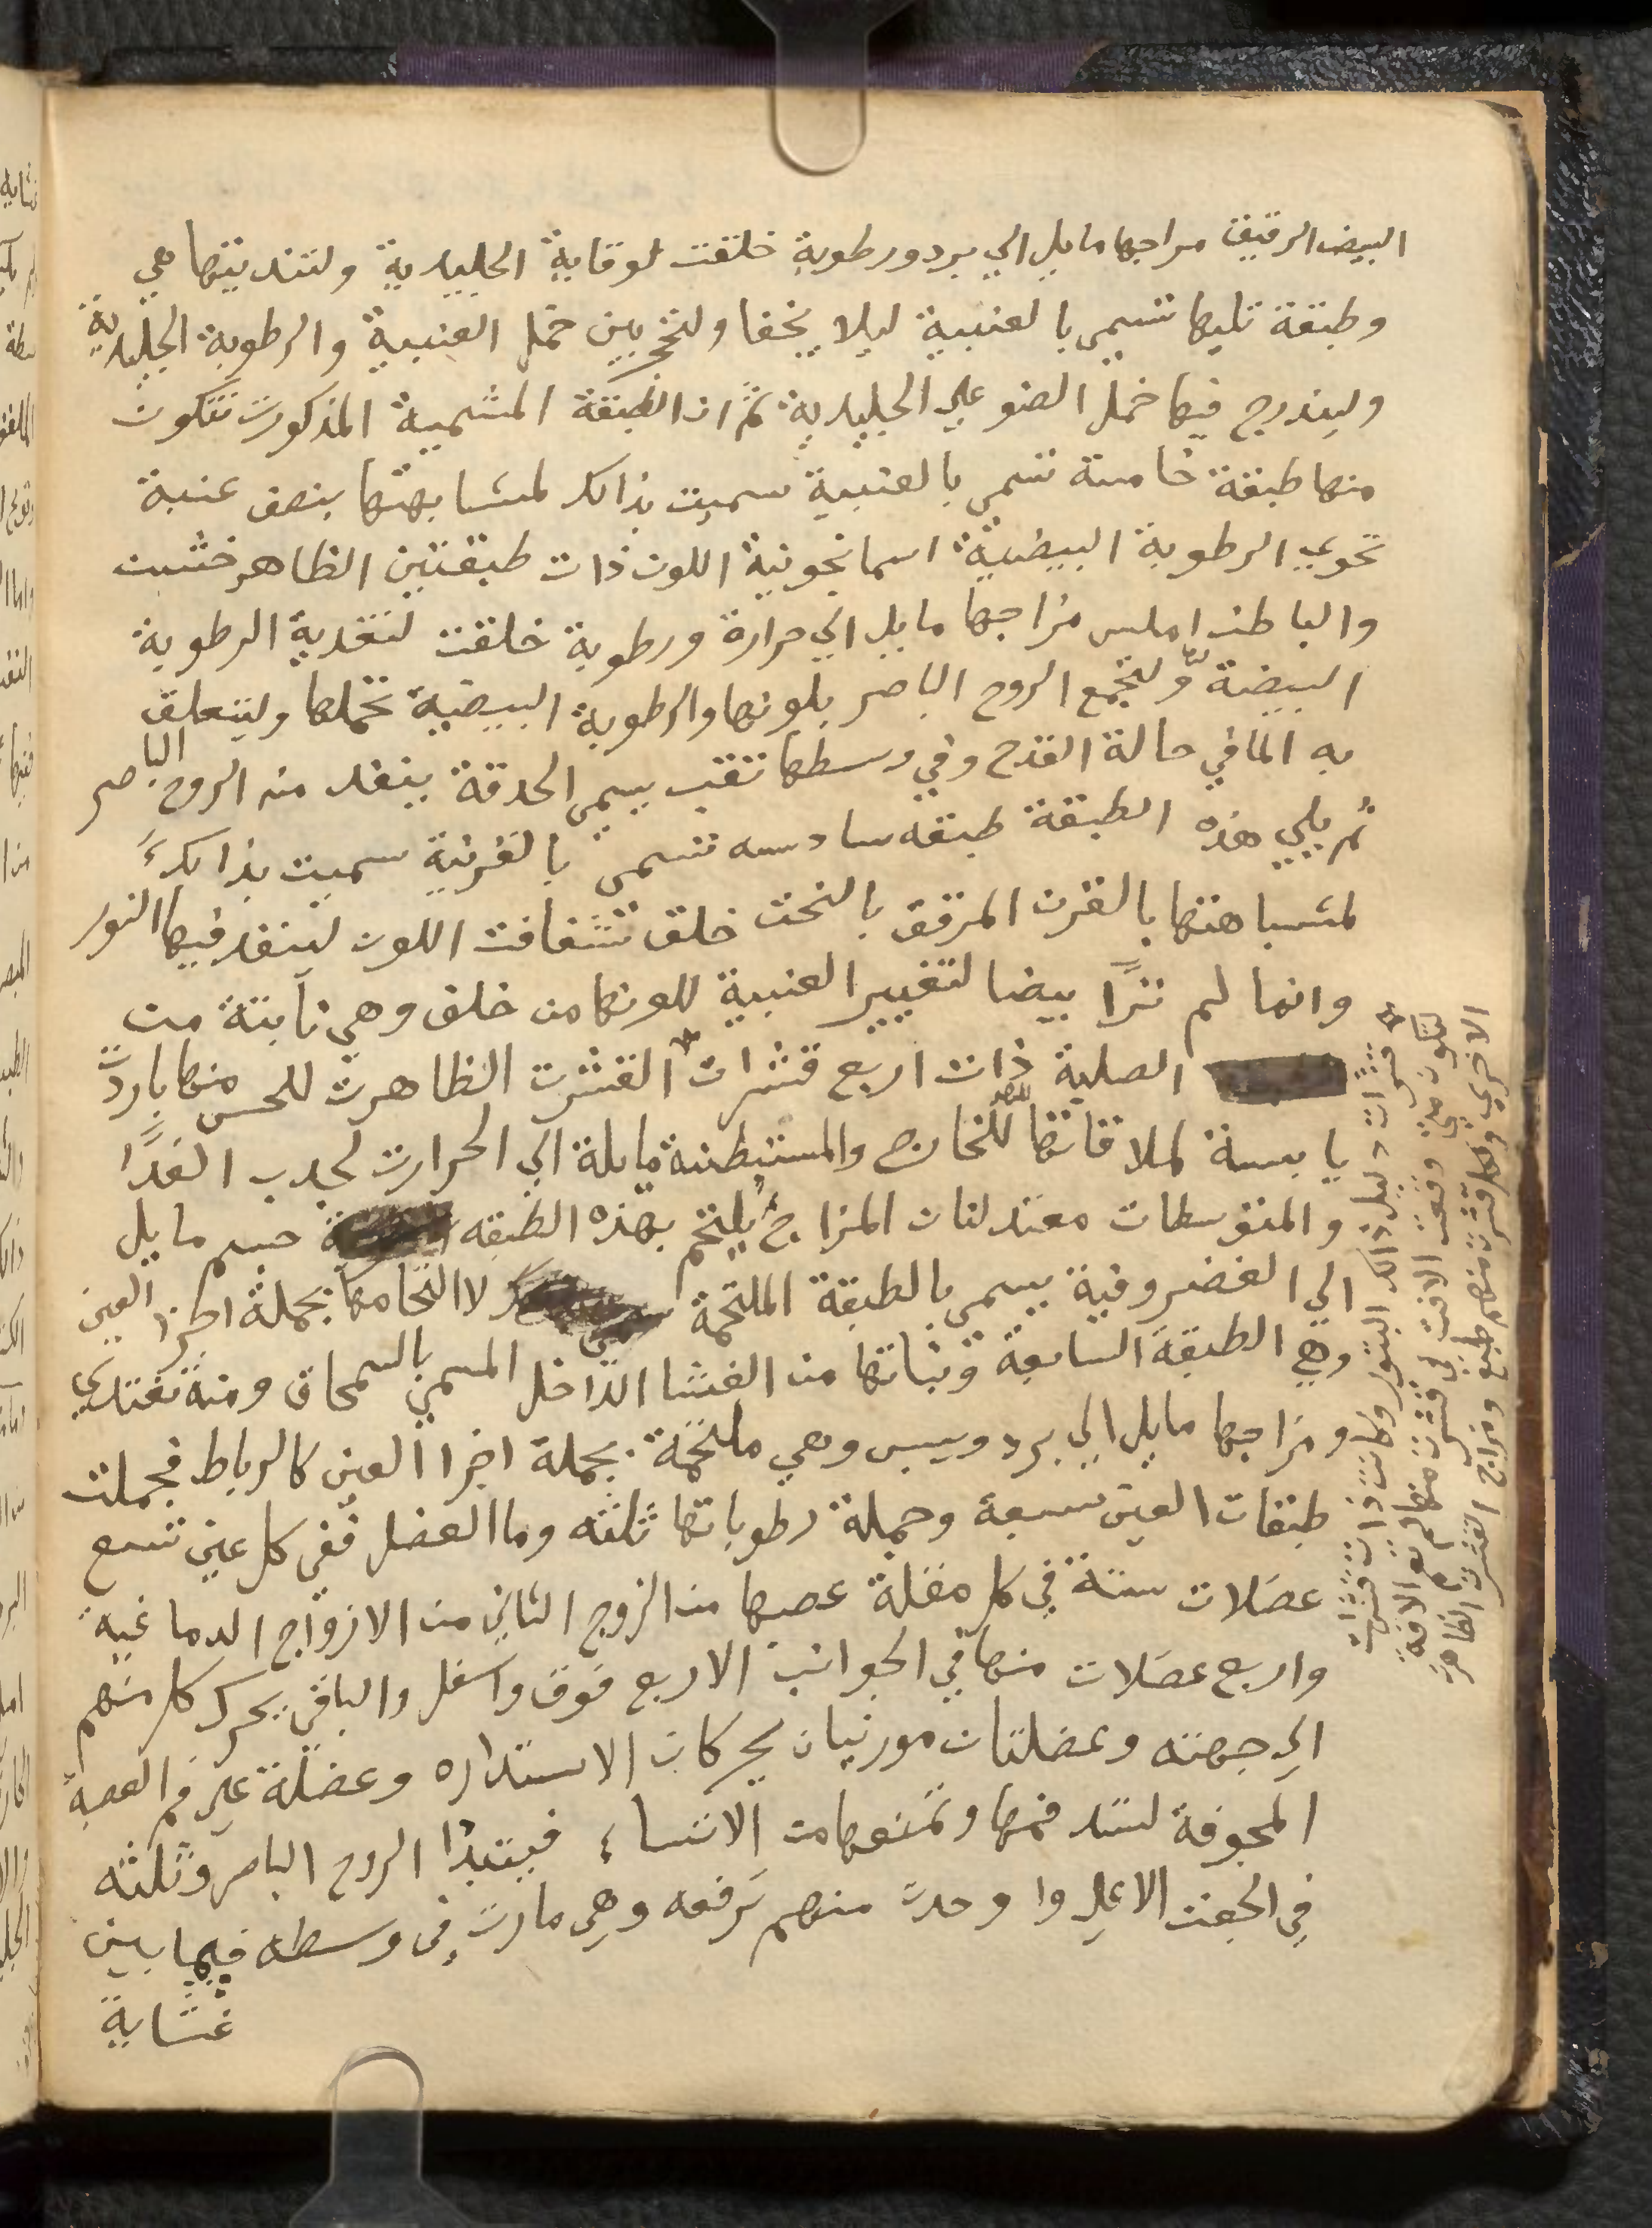 البيض الرقيق مزاجها مايل الي برد ورطوبة خلقت لوقاية الجليدية ولتنديتها هي
وطبقة تليها تسمي بالعنبية ليلا يخفا ولتحجز بين خمل العنبية والرطوبة الجليدية
وليندرج فيها خمل الضو علي الجليدية ثم ان الطبقة المشمية المذكورت تتكون
منها طبقة خامسة تسمي بالعنبية سميت بذالك لمشابهتها بنصف عنبة
تحوي الرطوبة البيضية اسمانجونية اللون ذات طبقتين الظاهر خشبت
والباطن املس مزاجها مايل الي حرارة ورطوبة خلقت لتغدية الرطوبة
البيضية ولتجمع الروح الباصر بلونها والرطوبة البيضية تخملها وليتعلق
به الما في حالة القدح وفي وسطها تقب يسمي الحدقة ينفد منه الروح الباصر
ثم يلي هذه الطبقة طبقه سادسه تسمي بالقرنية سميت بذالك
لمشباهتها بالقرن المرقق بالنحت خلق تشفافت اللون لينفد فيها النور
وانما لم تراً بيضا لتغيير العنبية للونها من خلف وهي نابتة من
الصلبة ذات اربع قشرات القشرت الظاهرت للحس منها باردت
يابسة لملاقاتها للخارج والمستبطنة مايلة الي الحرارت لجدب الغدا
والمتوسطات معتدلتان المزاج يلتحم بهذه الطبقه جسم مايل
الي الغضروفية يسمي بالطبقة الملتحمة لاالتحامها بجملة اجزا العين
وهي الطبقة السابعة ونباتها من الغشا الداخل المسمي بالسمحاق ومنه تغتدي
ومزاجها مايل الي برد ويبس وهي ملتحمة بجملة اجزا العين كالرباط فجملت
طبقات العين سبعة وجملة رطوباتها ثلثه وما العضل ففي كل عين تسع
عضلات ستة في كل مقلة عصبها من الزوج الثاني من الازواج الدماغية
واربع عضلات منها في الجوانب الاربع فوق واسفل والباقي يحرك كل منهم
الي جهته وعضلتان موربتان يحركان الاستداره وعضلة علي فم العصبة
المجوفة لتسد فمها وتمنعها من الاتساء فيتبدا الروح الباصر وثلثه
في الجفن الاعلي واوحدت منهم ترفعه وهي مارت في وسطه فيما بين
غشاية
قشرات دليل ذالك البثور وكانت ذات قشرات
لتكون متي وقعت الافت في قشرت منها لم تعم الافة
الاخري ولكل قشرت منهم طبع ومزاج القشرت الظاهرة